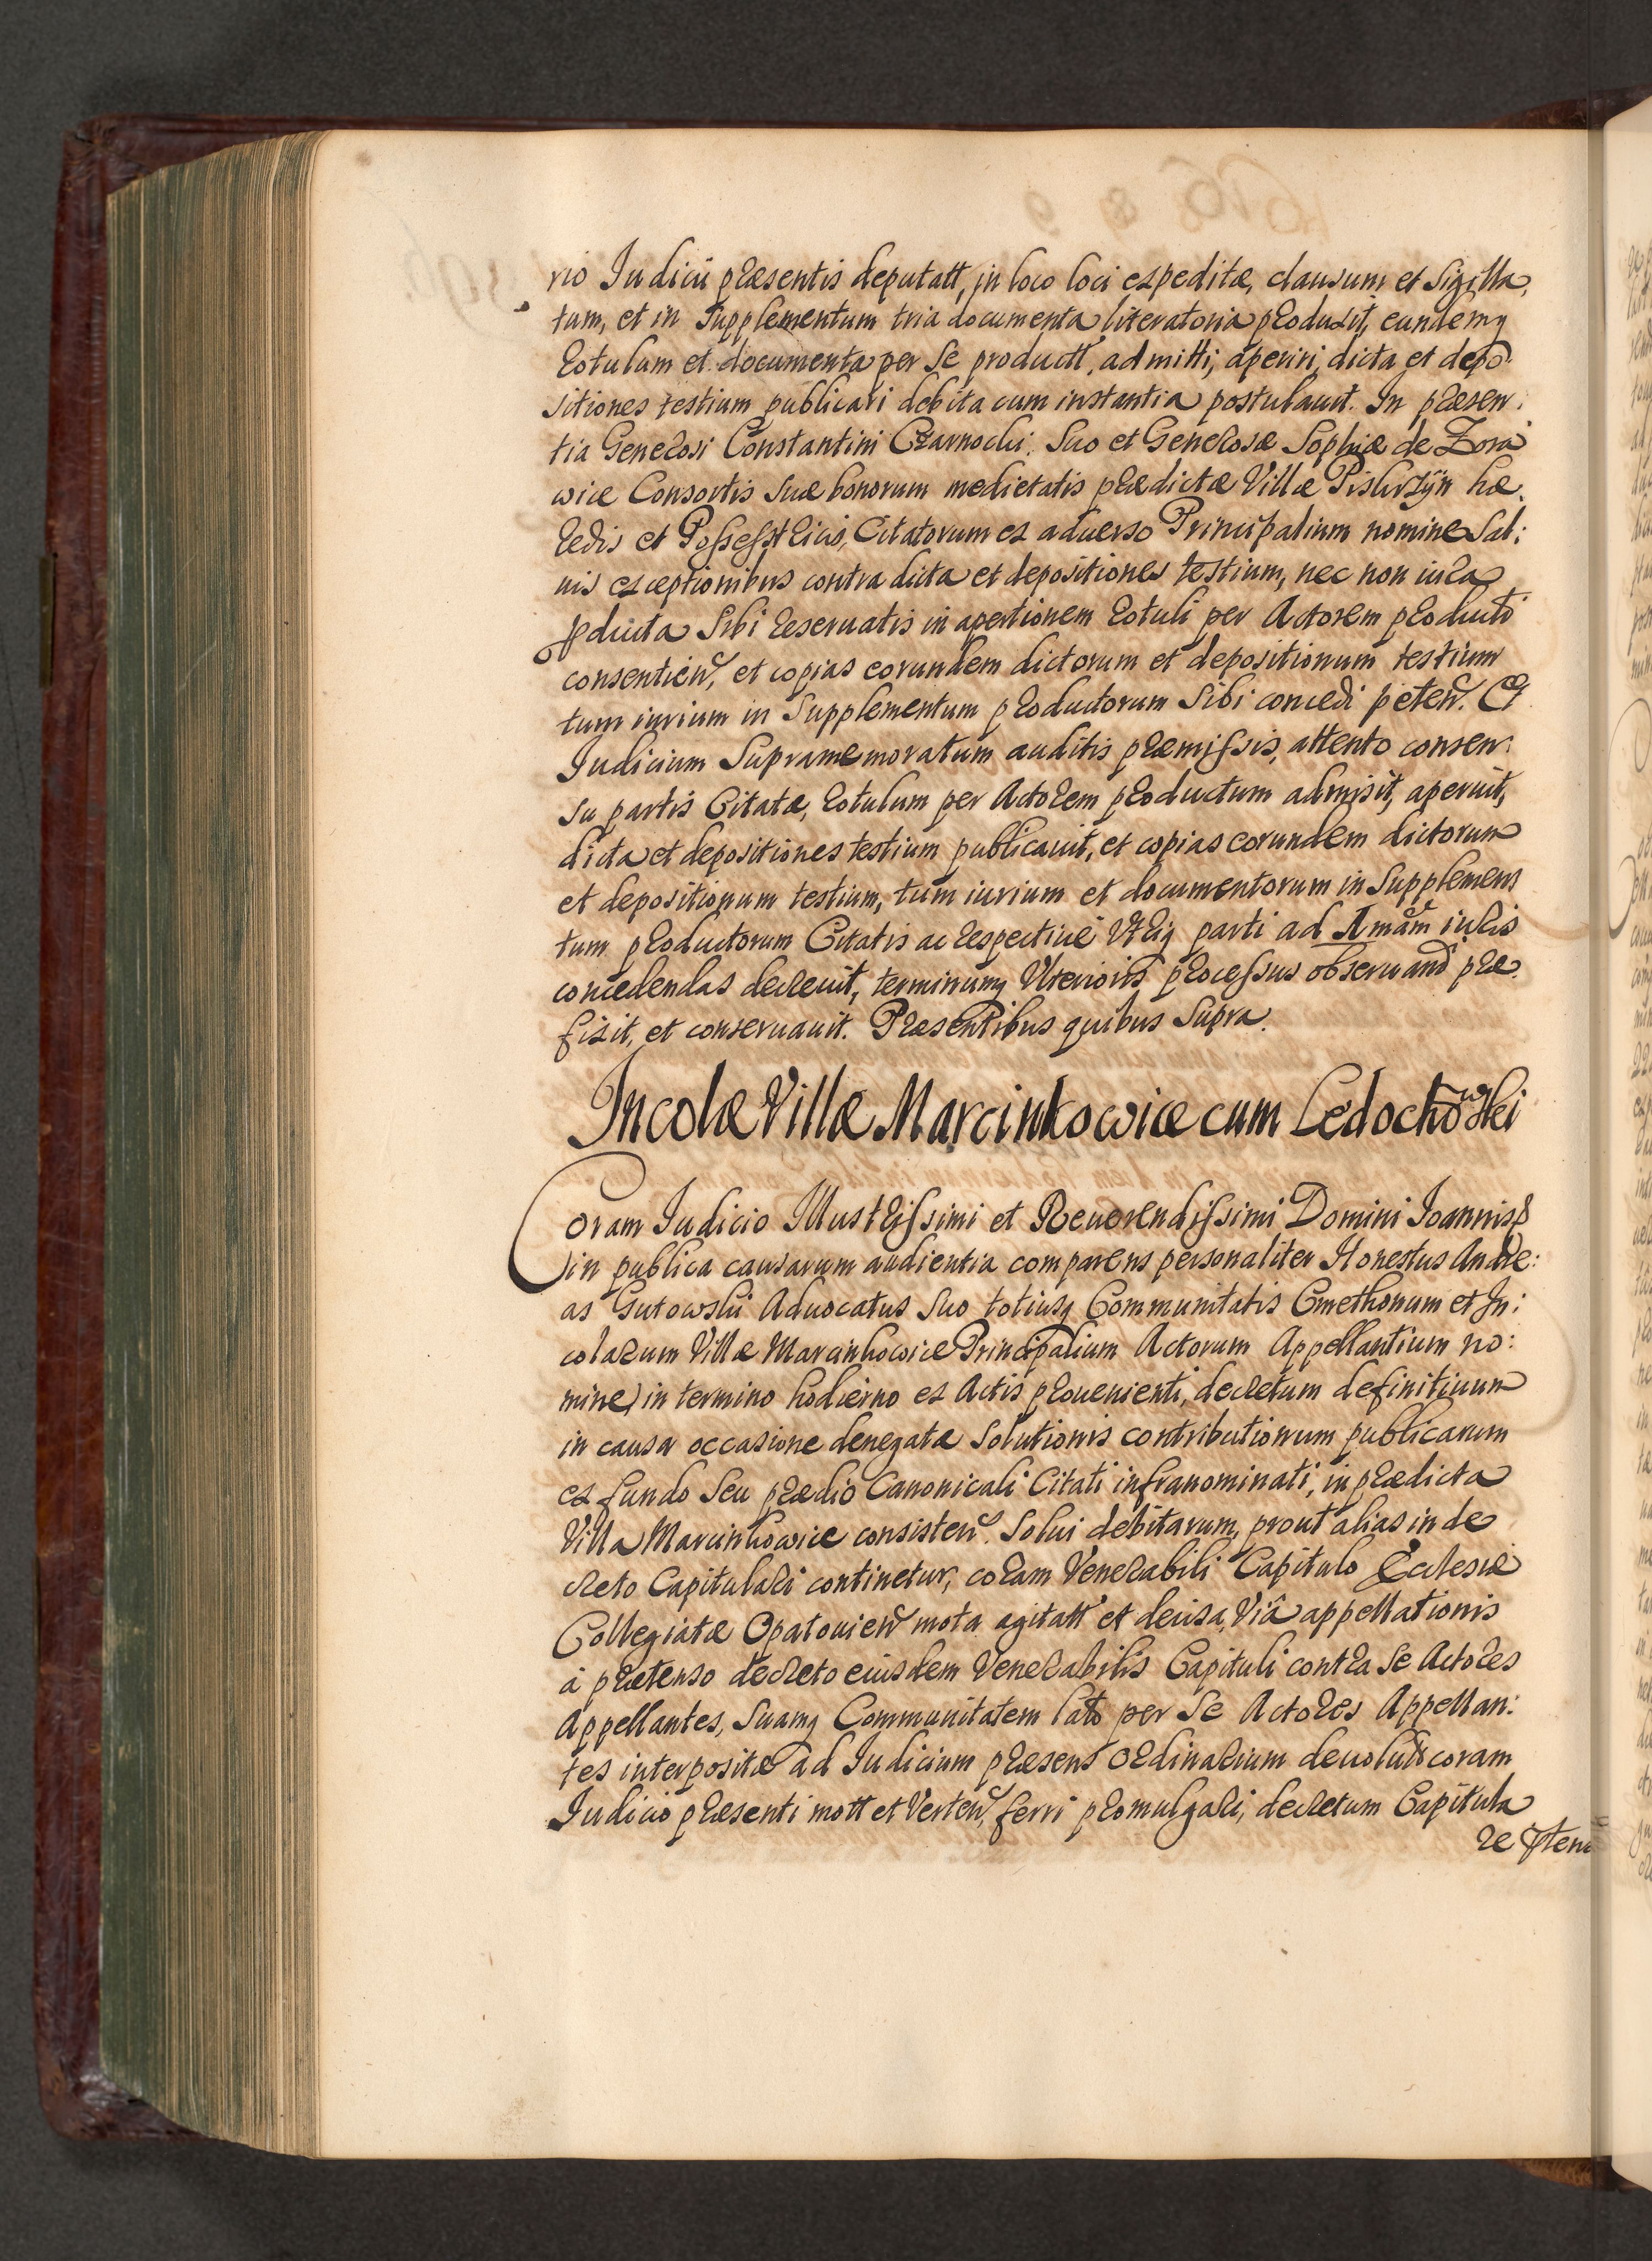 rio Iudicii præsentis deputatt, in loco loci expeditæ, clausum et Sigilla,
tum, et in Supplementum tria documenta literatoria produxit, eundemq
Rotulum et documenta per Se productt, admitti, aperiri, dicta et depo
sitiones testium publicari debita cum instantia postulauit. In præsen:
tia Generosi Constantini Czarnocki, Suo et Generosæ Sophiæ de Zora
wice Consortis Suæ bonorum medietatis prædictæ Villæ Piskrzÿn hæ
redis et Possesstricis, Citatorum ex aduerso Principalium nomine Sal:
uis exceptionibus contra dicta et depositiones testium, nec non iura
pducta Sibi reseruatis in apertionem Rotuli per Actorem producti
consentien, et copias eorundem dictorum et depositionum testium
tum iurium in Supplementum productorum Sibi concedi peten. Et
Iudicium Supramemoratum auditis præmissis, attento consen:
su partis Citatæ, Rotulum per Actorem productum admisit, aperuit,
dicta et depositiones testium publicauit, et copias eorundem dictorum
et depositionum testium, tum iurium et documentorum in Supplemen
tum productorum Citatis ac respectiue Vtriq parti ad Amam iuris
concedendas decreuit, terminumq Vlterioris processus obseruand præ
fixit, et conseruauit. Præsentibus quibus Supra.
Incolæ Villæ Marcinkowice cum Ledochowski
Coram Iudicio Illustrissimi et Reuerendissimi Domini Ioannis
in publica causarum audientia comparens personaliter Honestus Andre:
as Gutowski Aduocatus Suo totiusq Communitatis Cmethonum et In:
colarum Villæ Marcinkowice Principalium Actorum Appellantium no:
mine, in termino hodierno ex Actis prouenienti, decretum definitiuum
in causa occasione denegatæ Solutionis contributionum publicarum
ex fundo Seu prædio Canonicali Citati infranominati, in prædicta
Villa Marcinkowice consisten. Solui debitarum, prout alias in de
creto Capitulari continetur, coram Venerabili Capitulo Ecclesiæ
Collegiatæ Opatouien mota agitatt et decisa, Viâ appellationis
à prætenso decreto eiusdem Venerabilis Capituli contra Se Actores
Appellantes, Suamq Communitatem lato per Se Actores Appellan:
tes interpositæ ad Iudicium præsens Ordinarium deuoluta coram
Iudicio præsenti mott et Verten, ferri promulgari, decretum Capitula
re